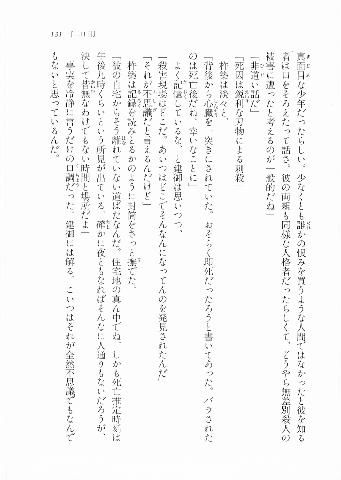 131　十一月
真面目な少年だったらしい。少なくとも誰かの恨みを買うような人間ではなかったと彼を知る
者は口をそろえたって話さ。彼の両親も同様な人格者だったらしくて、どうやら無差別殺人の
被害に遭ったと考えるのが一般的だね」
「非道い話だ」
「死因は鋭利な刃物による刺殺」
　柊築は淡々と、
「背後から心臓を一突きにされていた。おそらく即死だったろうと書いてあった。バラされた
のは死亡後だね。幸いなことに」
　よく記憶しているな、と建御は思いつつ、
「殺害現場はどこだ。あいつはどこでそんなんになってんのを発見されたんだ」
「それが不思議だと言えるんだけど」
　柊築は記録を読みとるかのように封筒をさっと撫でた。
「彼の自宅からそう離れていない道ばたなんだ。住宅地の真ん中でね、しかも死亡推定時刻は
午後九時くらいという所見が出ている。確かに夜ともなればそんなに人通りもないだろうが、
決して皆無なわけでもない時間と場所だよ」
　事実を冷静に言うだけの口調だった。建御には解る。こいつはそれが全然不思議でもなんで
もないと思っているんだ。